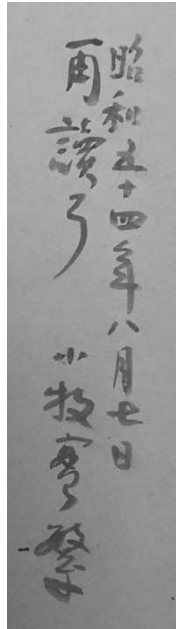 昭和五十四年八月七日
再讀了 小牧實繁